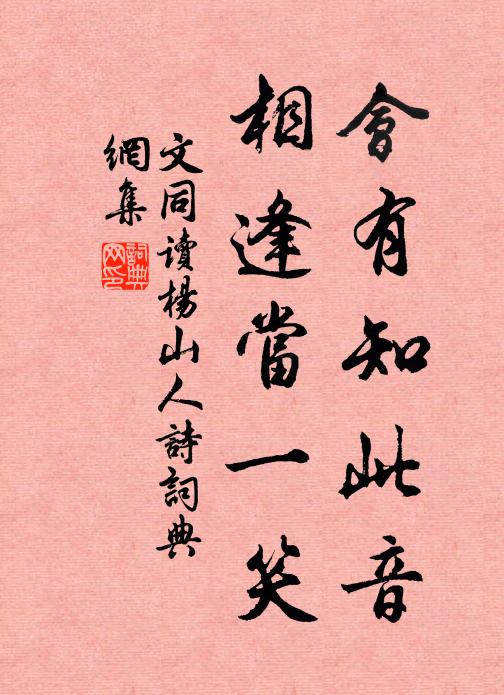 會有知此音
相逢當一笑
文同讀楊山人詩詞典
網集
詞典網印